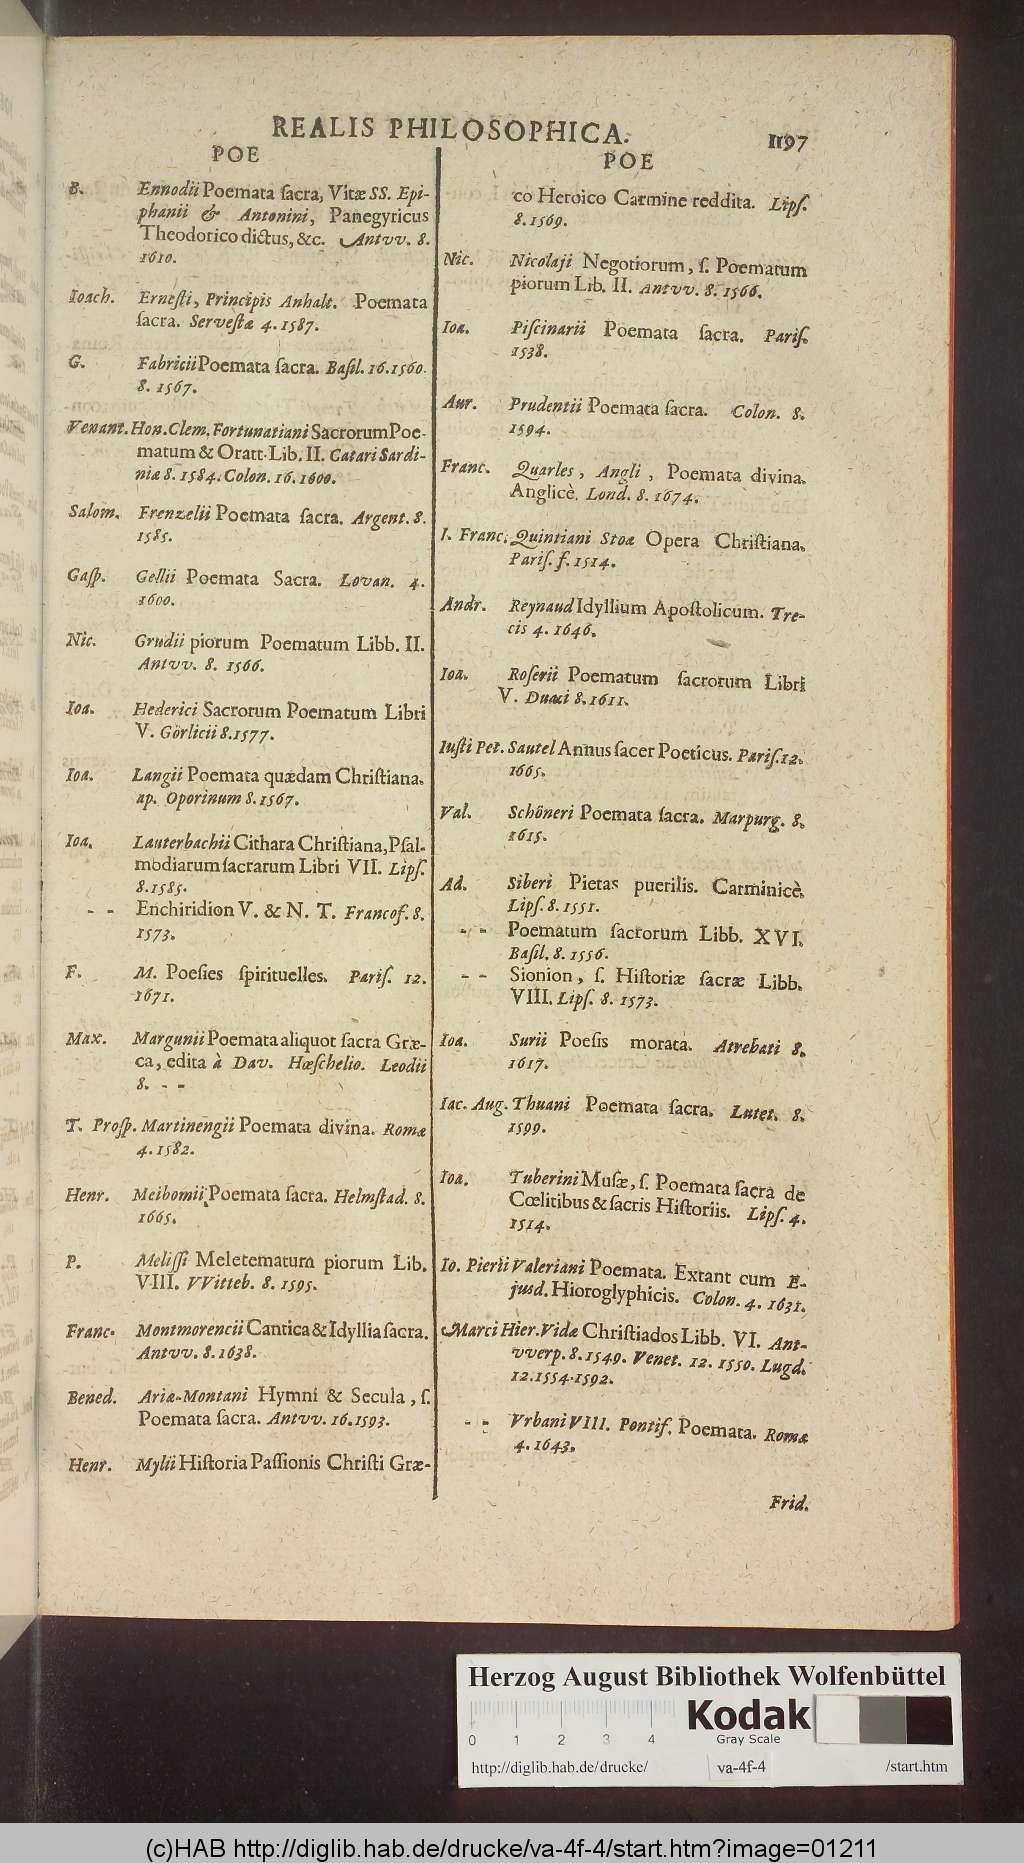 REALIS PHILOSOPHICA. 1197
POE
B. Ennodii Poemata sacra, Vitæ SS. Epi-
phanii & Antonini, Panegyricus
Theodorico dictus, &c. Antvv. 8.
1610.
Ioach. Ernesti, Principis Anhalt. Poemata
sacra. Servestæ 4. 1587.
G. Fabricii Poemata sacra. Basil. 16. 1560.
8. 1567.
Venant. Hon. Clem. Fortunatiani Sacrorum Poe-
matum & Oratt. Lib. II. Catari Sardi-
niæ 8. 1584. Colon. 16. 1600.
Salom. Frenzelii Poemata sacra. Argent. 8.
1585.
Gasp. Gellii Poemata Sacra. Lovan. 4.
1600.
Nic. Grudii piorum Poematum Libb. II.
Antvv. 8. 1566.
Ioa. Hederici Sacrorum Poematum Libri
V. Görlicii 8. 1577.
Ioa. Langii Poemata quædam Christiana.
ap. Oporinum 8. 1567.
Ioa. Lauterbachii Cithara Christiana, Psal-
modiarum sacrarum Libri VII. Lips.
8. 1585.
- - Enchiridion V. & N. T. Francof. 8.
1573.
F. M. Poesies spirituelles. Paris. 12.
1671.
Max. Margunii Poemata aliquot sacra Græ-
ca, edita à Dav. Hœschelio. Leodii
8. - -
T. Prosp. Martinengii Poemata divina. Romæ
4. 1582.
Henr. Meibomii Poemata sacra. Helmstad. 8.
1665.
P. Melissi Meletematum piorum Lib.
VIII. VVitteb. 8. 1595.
Franc. Montmorencii Cantica & Idyllia sacra.
Antvv. 8. 1638.
Bened. Ariæ-Montani Hymni & Secula, s.
Poemata sacra. Antvv. 16. 1593.
Henr. Mylii Historia Passionis Christi Græ-
POE
co Heroico Carmine reddita. Lips.
8. 1569.
Nic. Nicolaji Negotiorum, s. Poematum
piorum Lib. II. Antvv. 8. 1566.
Ioa. Piscinarii Poemata sacra. Paris.
1538.
Aur. Prudentii Poemata sacra. Colon. 8.
1594.
Franc. Quarles, Angli, Poemata divina.
Anglicè. Lond. 8. 1674.
I. Franc. Quintiani Stoæ Opera Christiana.
Paris. f. 1514.
Andr. Reynaud Idyllium Apostolicum. Tre-
cis 4. 1646.
Ioa. Roserii Poematum sacrorum Libri
V. Duaci 8. 1611.
Iusti Pet. Sautel Annus sacer Poeticus. Paris. 12.
1665.
Val. Schöneri Poemata sacra. Marpurg. 8.
1615.
Ad. Siberi Pietas puerilis. Carminicè.
Lips. 8. 1551.
- - Poematum sacrorum Libb. XVI.
Basil. 8. 1556.
- - Sionion, s. Historiæ sacræ Libb.
VIII. Lips. 8. 1573.
Ioa. Surii Poesis morata. Atrebati 8.
1617.
Iac. Aug. Thuani Poemata sacra. Lutet. 8.
1599.
Ioa. Tuberini Musæ, s. Poemata sacra de
Cœlitibus & sacris Historiis. Lips. 4.
1514.
Io. Pierii Valeriani Poemata. Extant cum E-
jusd. Hioroglyphicis. Colon. 4. 1631.
Marci Hier. Vidæ Christiados Libb. VI. Ant-
vverp. 8. 1549. Venet. 12. 1550. Lugd.
12. 1554. 1592.
- - Vrbani VIII. Pontif. Poemata. Romæ
4. 1643.
Frid.
Herzog August Bibliothek Wolfenbüttel
Kodak
Gray Scale
0 1 2 3 4
http://diglib.hab.de/drucke/ va-4f-4 /start.htm
(c)HAB http://diglib.hab.de/drucke/va-4f-4/start.htm?image=01211